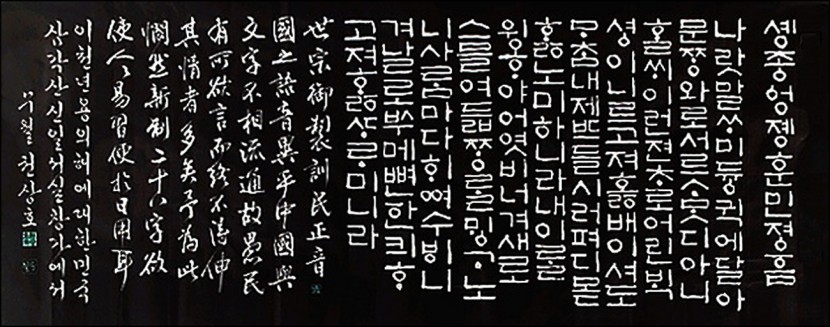 셰종엉졩훈민졍흠
나랏말ᄊᆞ미듕귁에달아
문ᄍᆞᆼ와로서르ᄉᆞᄆᆞᆺ디아니
ᄒᆞᆯᄊᆡ이런젼ᄎᆞ로어린ᄇᆡᆨ
셩이니르고져ᄒᆞᇙ배이셔도
ᄆᆞᄎᆞᆷ내제ᄠᅳ들시러펴디몯
ᄒᆞᇙ노미하니라내이ᄅᆞᆯ
윙ᄒᆞ야어엿비너겨새로
스믈여듧ᄍᆞᆼᄅᆞᆯᄆᆡᇰᄀᆞ노
니사ᄅᆞᆷ마다ᄒᆡᅇᅧ수ᄫᅵ니
겨날로ᄡᅮ메뼌한킈ᄒᆞ
고져ᄒᆞᇙᄯᆞᄅᆞ미니라
世宗御製訓民正音
國之語音異乎中國與
文字不相流通故愚民
有所欲言而終不得伸
其情者多矣予為此
憫然新制二十八字欲
使人易習便於日用耳
이천년용의해에대한민국
삼각산신일서실창가에서
무월권상호